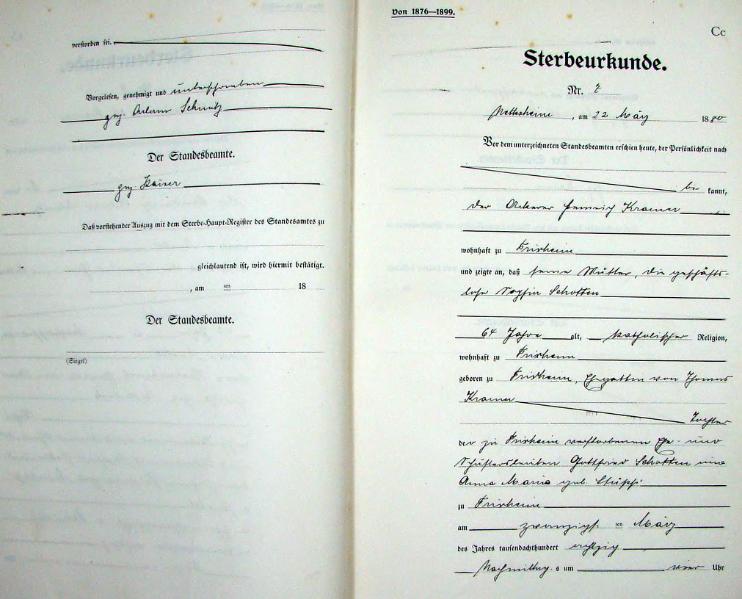 verstorben sei.
Vorgelesen, genehmigt und unterschrieben
gez. Adam Schmitz
Der Standesbeamte.
gez. Kaiser
Daß vorstehender Auszug mit dem Sterbe-Haupt-Register des Standesamtes zu
gleichlautend ist, wird hiermit bestätigt.
, am 18
Der Standesbeamte.
(Siegel)
Von 1876—1899.
Cc
Sterbeurkunde.
Nr.
, am 22 März 1880
Vor dem unterzeichneten Standesbeamten erschien heute, der Persönlichkeit nach
be kannt,
der Ackerer Heinrich Kramer
wohnhaft zu Frixheim
und zeigte an, daß seine Mutter, die geschäfts-
lose Sophia Schotten
64 Jahre alt, katholischer Religion,
wohnhaft zu Frixheim
geboren zu Frixheim, Ehegattin von Thomas
Kramer
Tochter
der zu Frixheim verstorbenen Ehe- und
Gottfried Schotten und
Anna Maria geb.
zu Frixheim
am zwanzigst en März
des Jahres tausendachthundert achtzig
Nachmittag s um vier Uhr